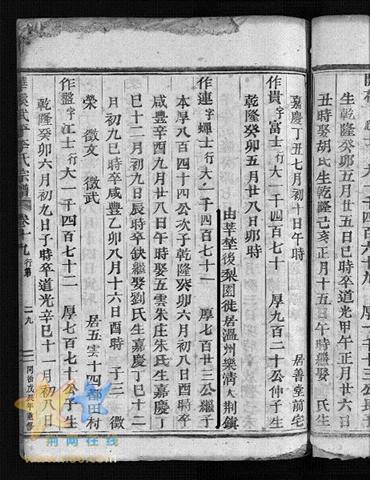 丑時娶胡氏生乾隆 亥正月十五日午時繼娶 氏生
嘉慶丁丑七月初十日午時 居善堂前宅
作貴字富士行大一千四百七十 厚九百二十公仲子生
乾隆癸卯五月廿八日卯時
由莘塍後梨園徙居溫州樂清大荆鎮
作連字蟬士行大一千四百七十一 厚七百廿三公繼子
本厚八百四十四公次子乾隆癸卯六月初八日酉時卒
咸豐辛酉九月廿八日午時娶五雲朱庄朱氏生嘉慶丁
巳十二月初九日辰時缺繼娶劉氏生嘉慶丁巳十二
月初九巳時卒咸豐乙卯八月十六日酉時 子三 徵
榮 徵文 徵武 居五雲十四都田村
作盤字江士行大一千四百七十二 厚七百七十公子生
乾隆癸卯六月初九日時卒道光辛巳十一月初八日
武平李氏宗譜 卷十九 行第 二九 同治戊辰年重修
荆网在线